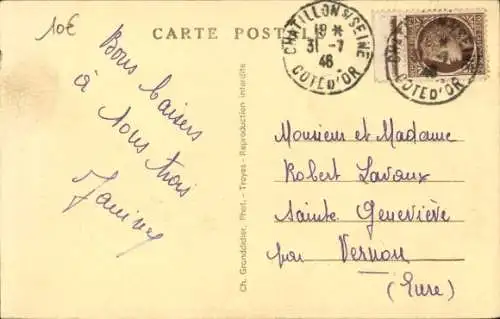 10€
CARTE POSTALE
CHATILLON S/ SEINE
19 *
31-7
46
COTE D'OR
COTE D'OR
Bons baisers
à tous trois
Ch. Grandidier, Phot. - Troyes - Reproduction interdite
Monsieur et Madame
Robert Lavaux
Sainte Geneviève
par Vernon
(Eure)